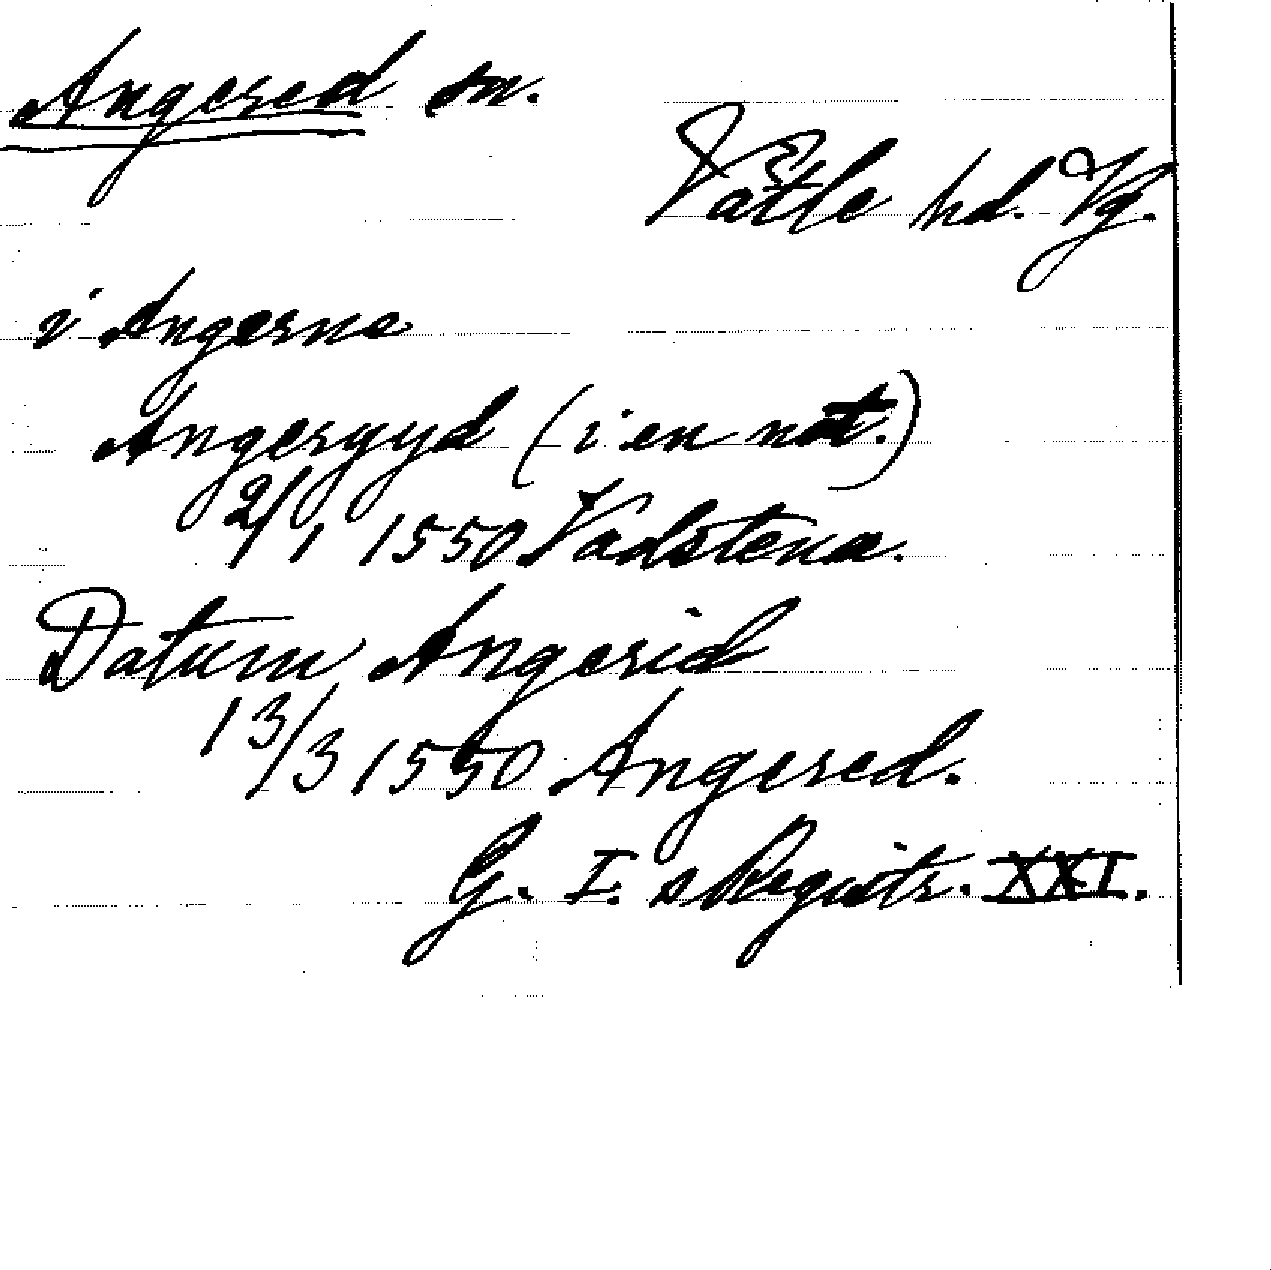 Angered sn.
Vättle hd. Vg.
i Angerne
Angeryyd (i en not.)
2/1 1550 Vadstena.
Datum Angerid
13/3 1550 Angered.
G. I:s Registr. XXI.